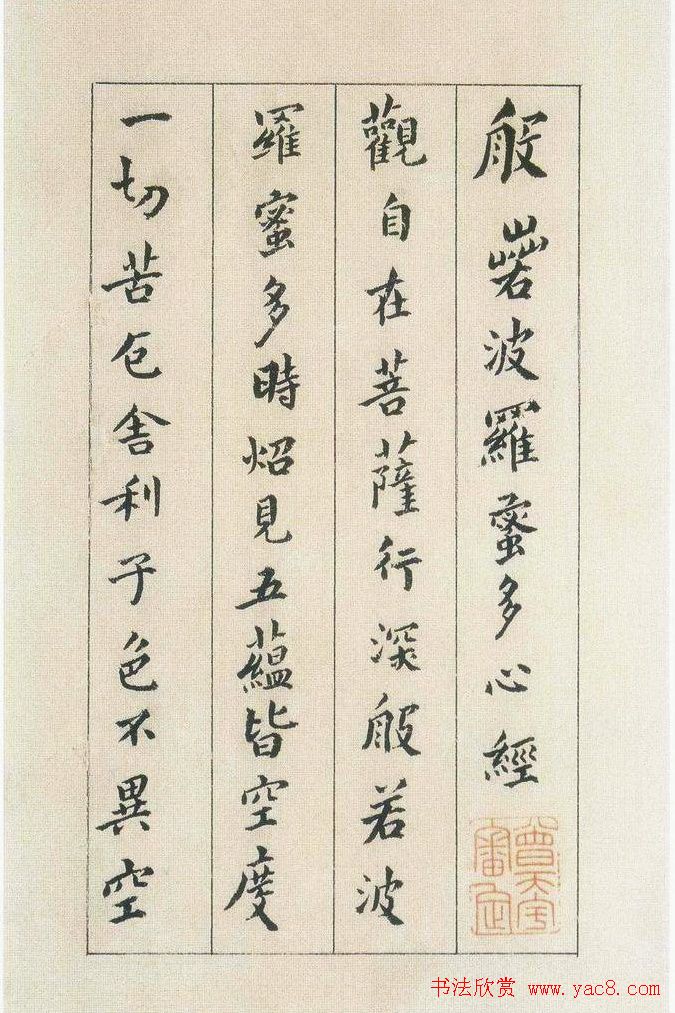 般若波羅蜜多心經
觀自在菩薩行深般若波
羅蜜多時炤見五蘊皆空度
一切苦厄舍利子色不異空
书法欣赏 www.yac8.com